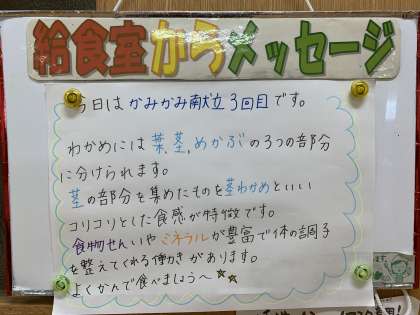 給食室からメッセージ
今日は かみかみ献立 3回目 です。
わかめには 葉、茎、めかぶ の 3つの部分
に分けられます。
茎の部分を集めたものを茎わかめといい
コリコリとした食感が特徴です。
食物せんいやミネラルが豊富で体の調子
を整えてくれる働きがあります。
よくかんで食べましょう〜